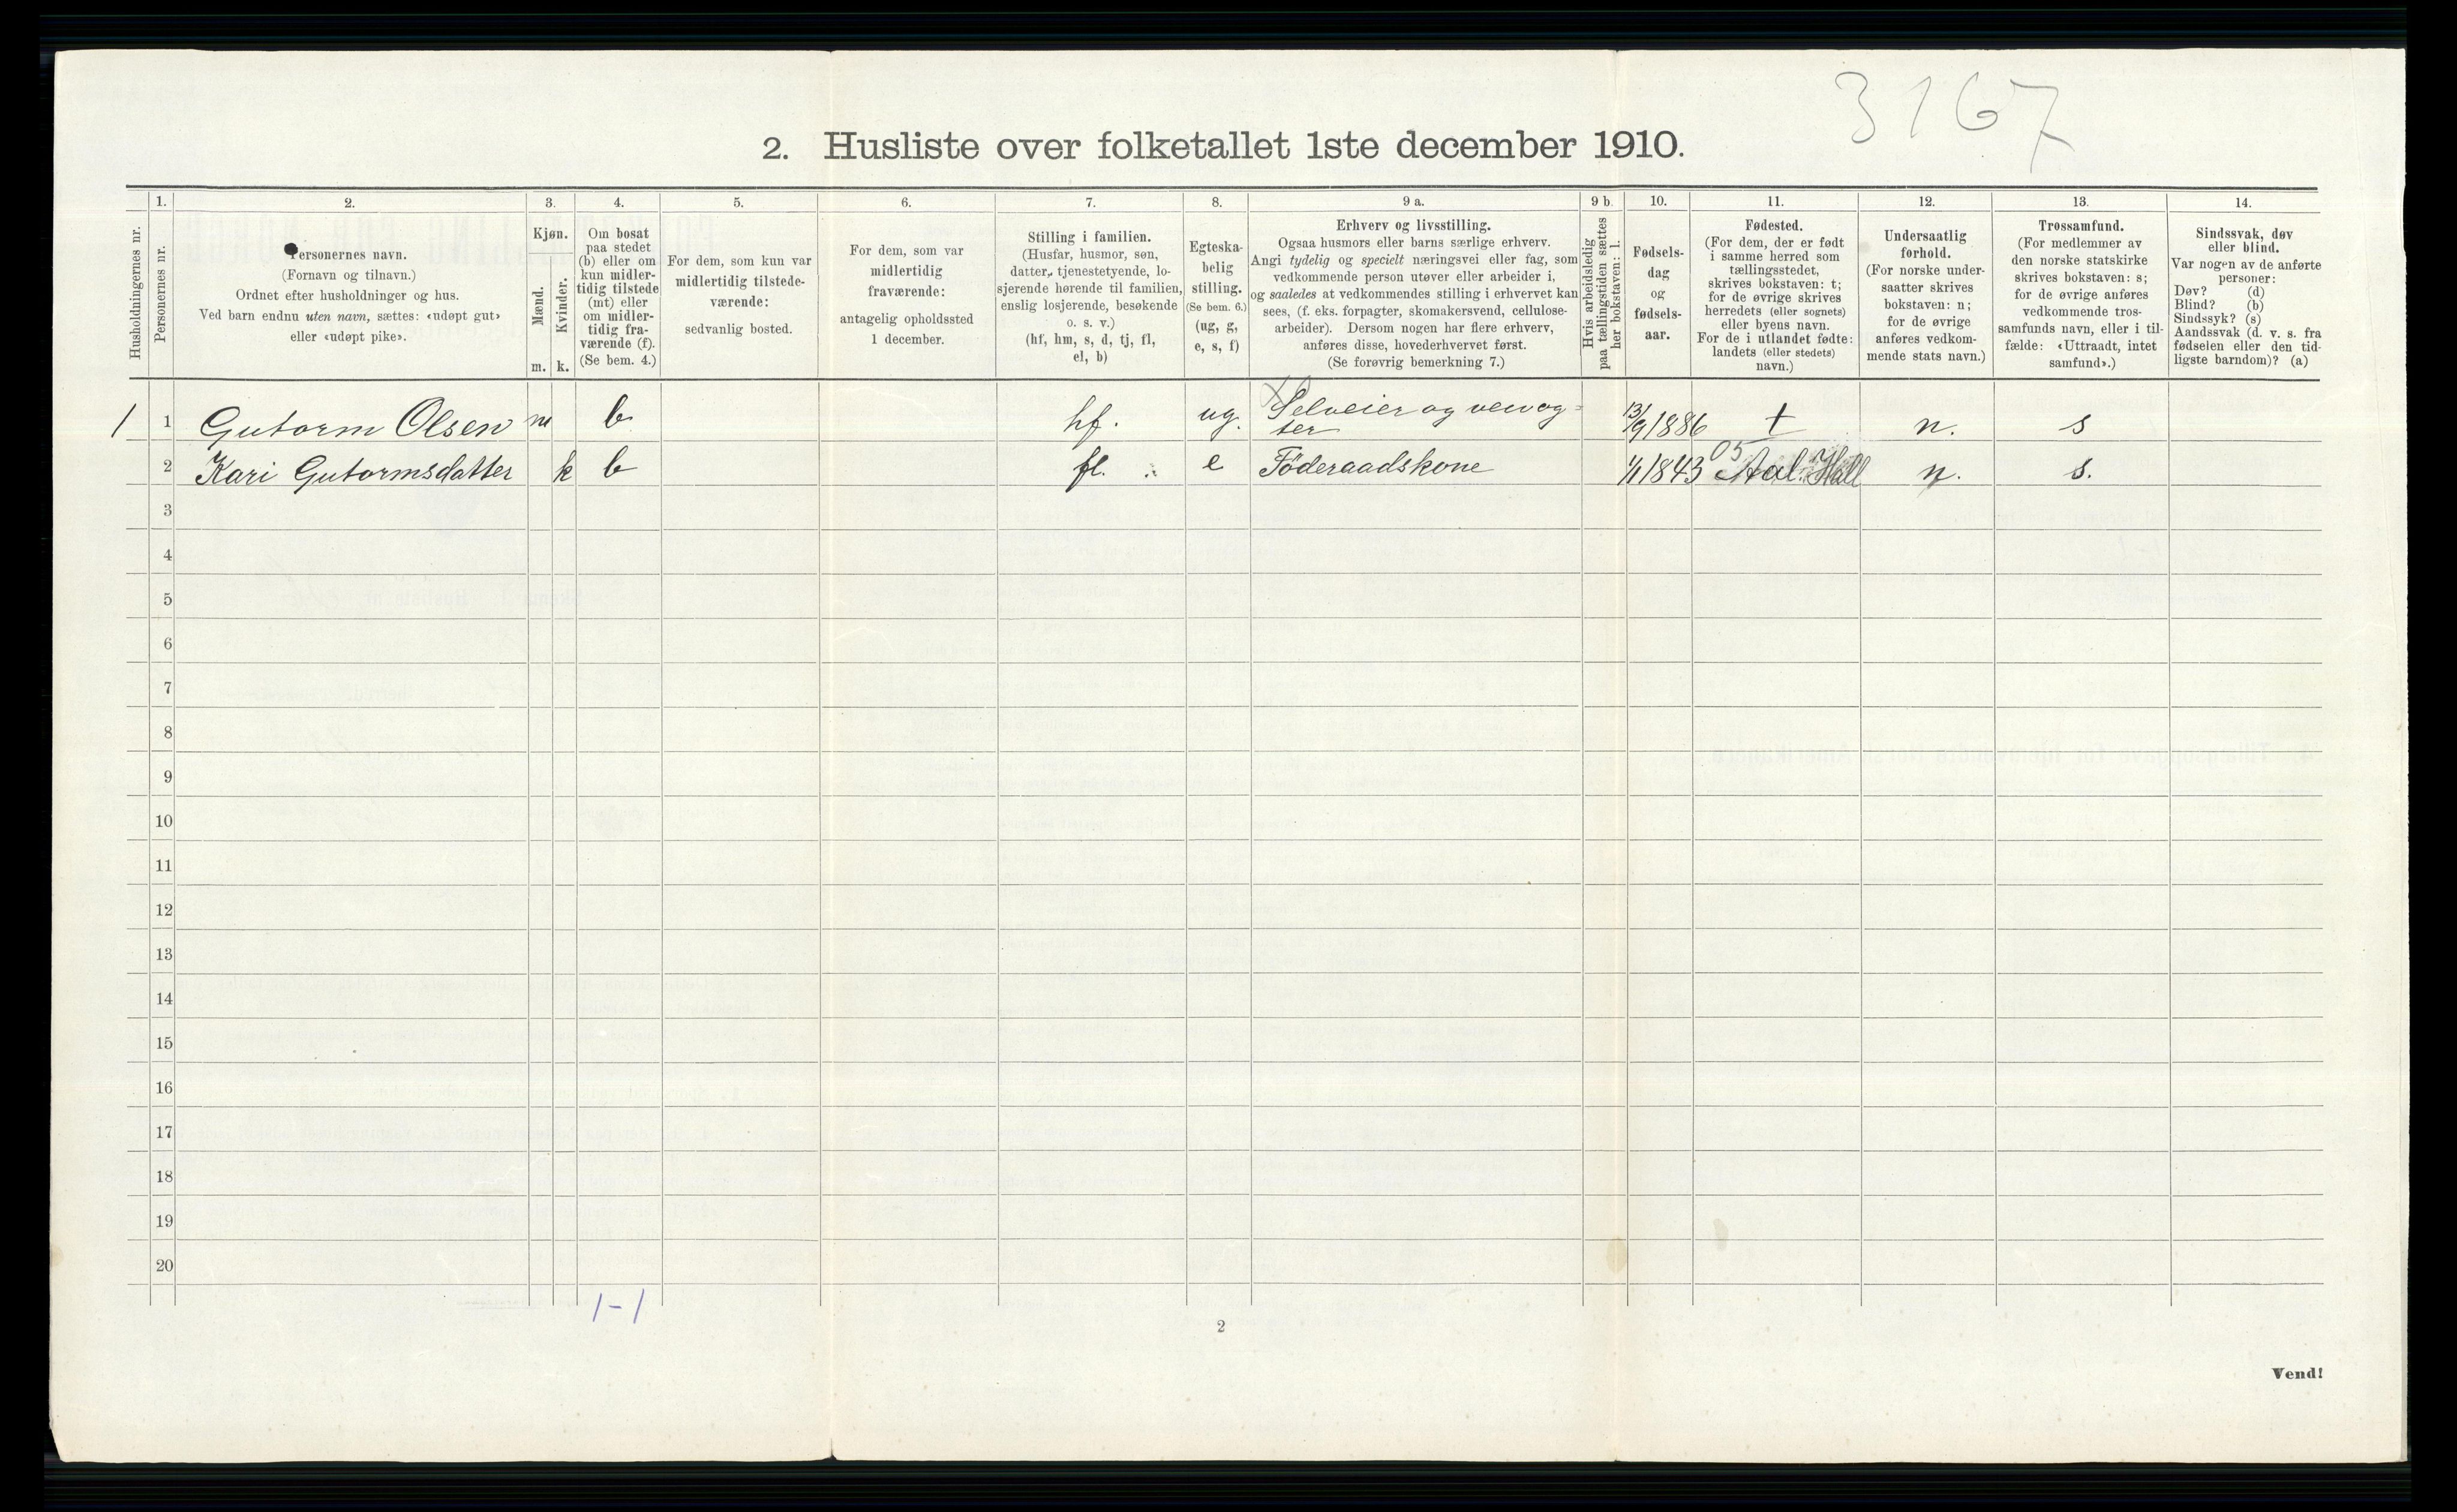 3167
2. Husliste over folketallet 1ste december 1910.
Husholdningernes nr.
1.
Personernes nr.
2.
Personernes navn.
(Fornavn og tilnavn.)
Ordnet efter husholdninger og hus.
Ved barn endnu uten navn, sættes: «udøpt gut»
eller «udøpt pike».
3.
Kjøn.
Mænd.
Kvinder.
m.
k.
4.
Om bosat
paa stedet
(b) eller om
kun midler-
tidig tilstede
(mt) eller
om midler-
tidig fra-
værende (f).
(Se bem. 4.)
5.
For dem, som kun var
midlertidig tilstede-
værende:
sedvanlig bosted.
6.
For dem, som var
midlertidig
fraværende:
antagelig opholdssted
1 december.
7.
Stilling i familien.
(Husfar, husmor, søn,
datter, tjenestetyende, lo-
sjerende hørende til familien,
enslig losjerende, besøkende
o. s. v.)
(hf, hm, s, d, tj, fl,
el, b)
8.
Egteska-
belig
stilling.
(Se bem. 6.)
(ug, g,
e, s, f)
9 a.
Erhverv og livsstilling.
Ogsaa husmors eller barns særlige erhverv.
Angi tydelig og specielt næringsvei eller fag, som
vedkommende person utøver eller arbeider i,
og saaledes at vedkommendes stilling i erhvervet kan
sees, (f. eks. forpagter, skomakersvend, cellulose-
arbeider). Dersom nogen har flere erhverv,
anføres disse, hovederhvervet først.
(Se forøvrig bemerkning 7.)
9 b.
Hvis arbeidsledig
paa tællingstiden sættes
her bokstaven: l.
10.
Fødsels-
dag
og
fødsels-
aar.
11.
Fødested.
(For dem, der er født
i samme herred som
tællingsstedet,
skrives bokstaven: t;
for de øvrige skrives
herredets (eller sognets)
eller byens navn.
For de i utlandet fødte:
landets (eller stedets)
navn.)
12.
Undersaatlig
forhold.
(For norske under-
saatter skrives
bokstaven: n;
for de øvrige
anføres vedkom-
mende stats navn.)
13.
Trossamfund.
(For medlemmer av
den norske statskirke
skrives bokstaven: s;
for de øvrige anføres
vedkommende tros-
samfunds navn, eller i til-
fælde: «Uttraadt, intet
samfund».)
14.
Sindssvak, døv
eller blind.
Var nogen av de anførte
personer:
Døv? (d)
Blind? (b)
Sindssyk? (s)
Aandssvak (d. v. s. fra
fødselen eller den tid-
ligste barndom)? (a)
1 1 Gutorm Olsen m b hf. ug. Selveier og 13/9 1886 t n. s
2 Kari Gutormsdatter k b fl. e Föderaadskone 1/1 1843 05 Aal. Hall n. s.
3
4
5
6
7
8
9
10
11
12
13
14
15
16
17
18
19
20
1-1
2
Vend!